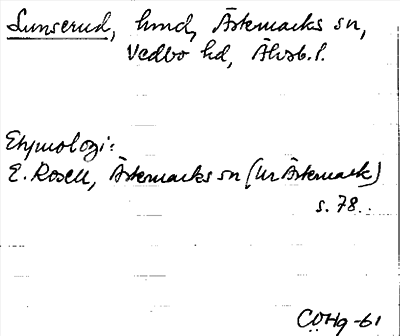 Lunserud, hmd, Ärtemarks sn,
Vedbo hd, Älvsb. l.
Etymologi:
E. Rosell, Ärtemarks sn (ur Ärtemark)
s. 78.
C.O.Hg -61